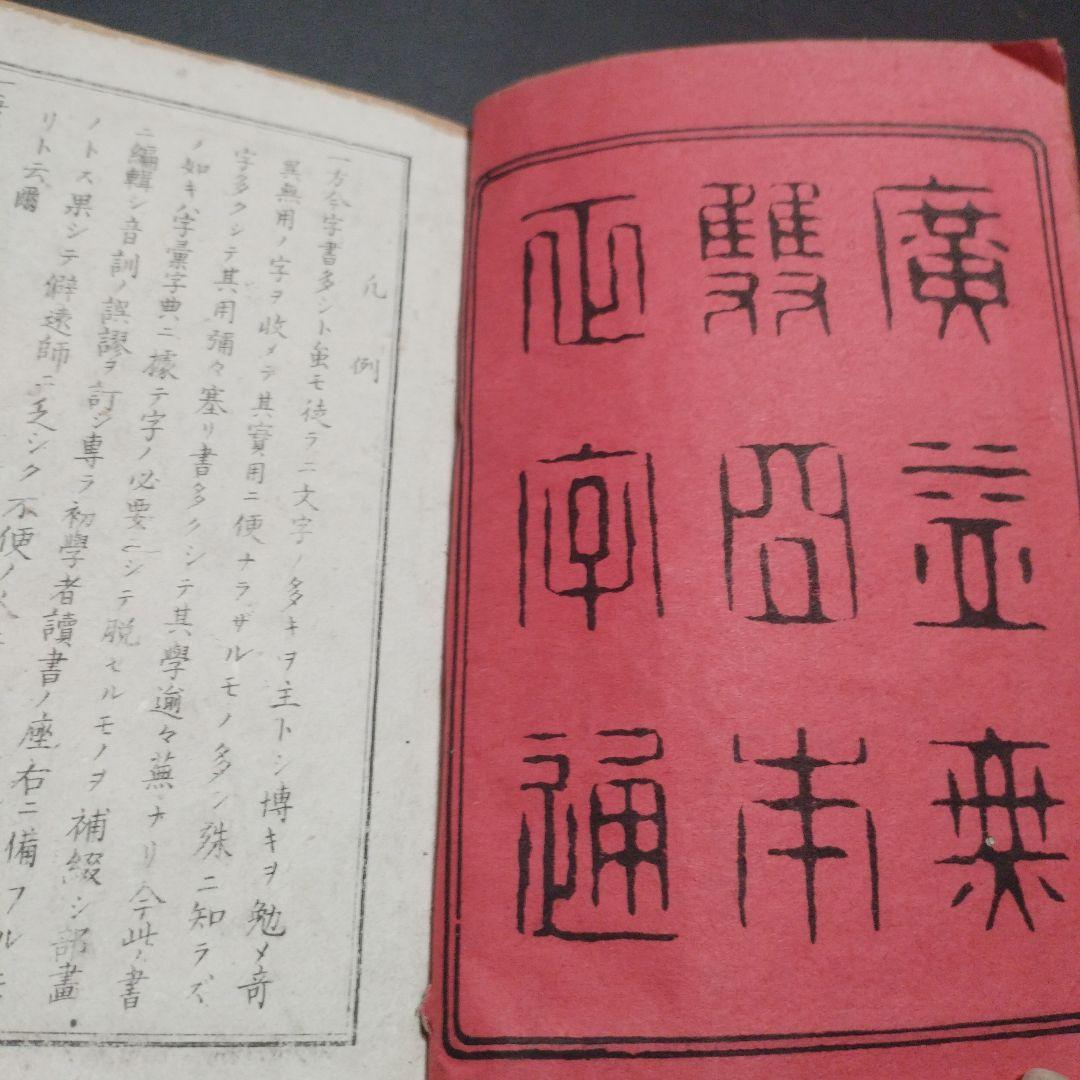 廣益無
雙日本
正字通
凡例
一方今字書多シト虽モ徒ラニ文字ノ多キヲ主トシ博キヲ勉メ奇
異無用ノ字ヲ收メテ其實用ニ便ナラザルモノ多シ殊ニ知ラズ
字多クシテ其用彌々塞リ書多クシテ其學逾々蕪ナリ今此ノ書
ノ如キハ字彙字典ニ據テ字ノ必要ニシテ脱セルモノヲ補綴シ部畫
ニ編輯シ音訓ノ誤謬ヲ訂シ専ラ初學者讀書ノ座右ニ備フル
ノトス果シテ僻遠師ニ乏シク不便ノ
リト云爾